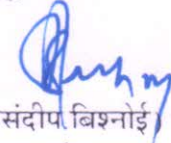 संदीप बिश्नोई)